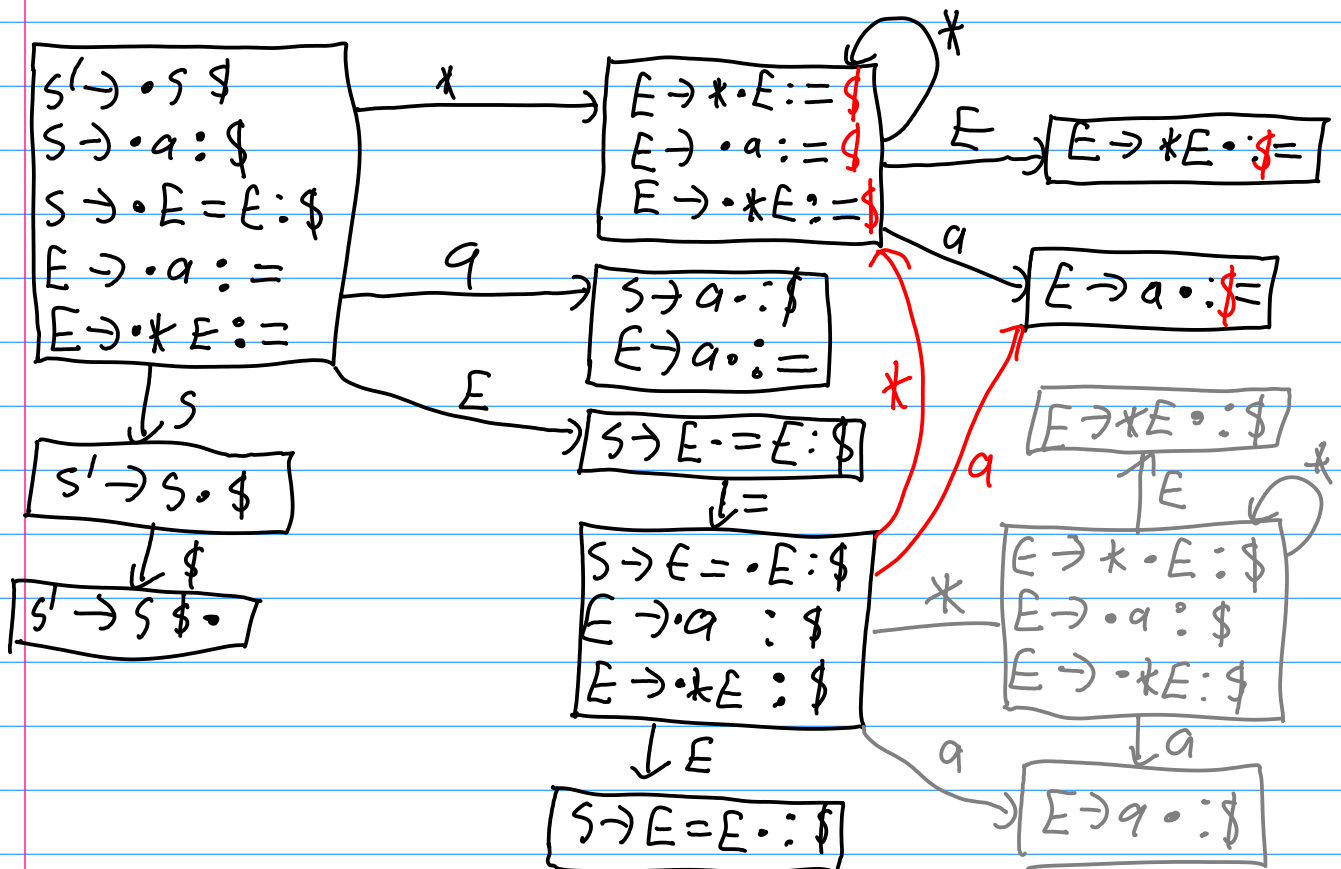 S' → • S $
S → • a : $
S → • E = E : $
E → • a : =
E → • * E : =
S
S' → S • $
$
S' → S $ •
*
a
E
E → * • E : = $
E → • a : = $
E → • * E : = $
*
E
E → * E • : $ =
a
E → a • : $ =
S → a • : $
E → a • : =
S → E • = E : $
=
S → E = • E : $
E → • a : $
E → • * E : $
*
a
E
S → E = E • : $
E → * E • : $
E
*
*
E → * • E : $
E → • a : $
E → • * E : $
a
a
E → a • : $